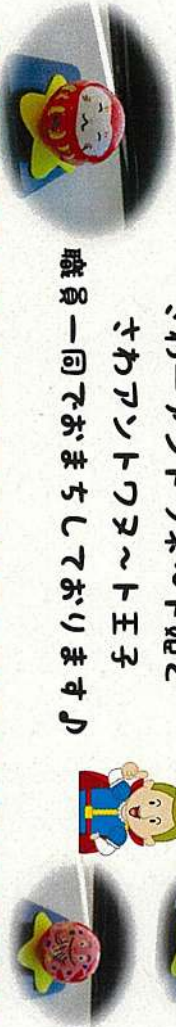 さわアントワヌ~ト王子
職員一同でおまちしております♪